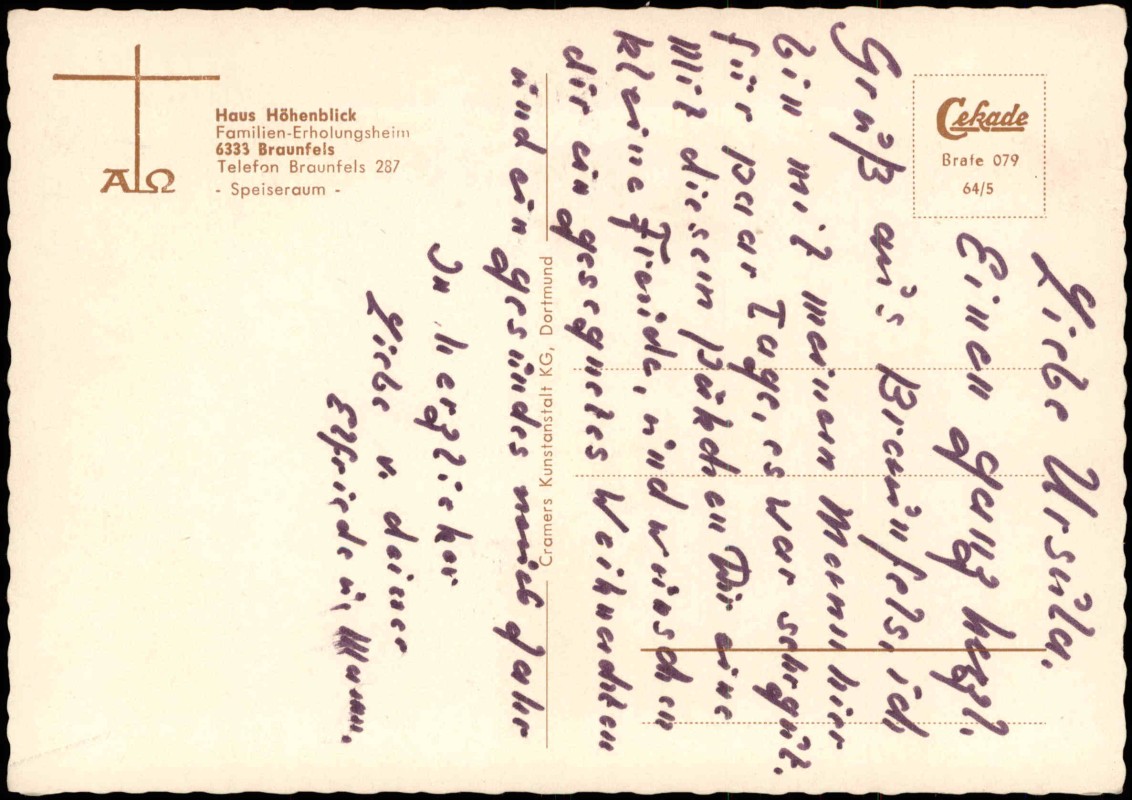 Haus Höhenblick
Familien-Erholungsheim
6333 Braunfels
Telefon Braunfels 287
- Speiseraum -
Α Ω
Cekade
Brafe 079
64/5
Cramers Kunstanstalt KG, Dortmund
Liebe Ursula,
Einen ganz herzl.
Gruß aus Braunfels, ich
bin mit meinem Mann hier
für paar Tage, es war sehr gut.
Mit diesem Päkchen Dir eine
kleine Freude, und wünschen
dir ein gesegnetes Weihnachten
und ein gesundes neues Jahr
In herzlicher
Liebe v deiner
Elfriede u,